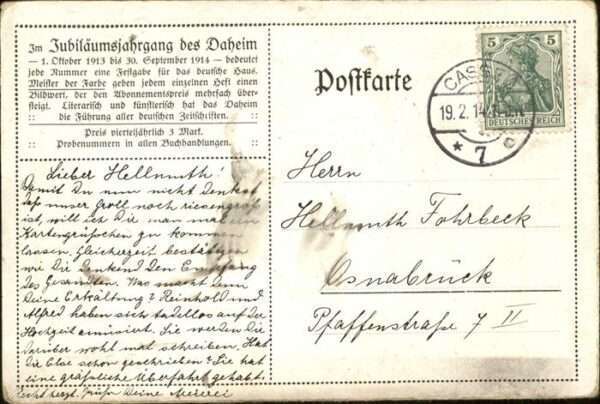 Im Jubiläumsjahrgang des Daheim
— 1. Oktober 1913 bis 30. September 1914 — bedeutet
jede Nummer eine Festgabe für das deutsche Haus.
Meister der Farbe geben jedem einzelnen Heft einen
Bildwert, der den Abonnementspreis mehrfach über-
steigt. Literarisch und künstlerisch hat das Daheim
:: die Führung aller deutschen Zeitschriften. ::
Preis vierteljährlich 3 Mark.
Probenummern in allen Buchhandlungen.
Postkarte
CASSEL
19.2.14
* 7 c
5 5
DEUTSCHES REICH
Lieber Hellmuth!
Damit Du nun nicht denkst
daß unser Groll noch riesengroß
ist, will ich Dir man mal ein
Kartengrüßchen zu kommen
lassen. Gleicherzeit bestätigen
wir Dir dankend den Empfang
des Gesandten. Was macht denn
Deine Erkältung? Reinhold und
Alfred haben sich tadellos auf der
Hochzeit amüsiert. Sie werden Dir
darüber wohl mal schreiben. Hat
die Else schon geschrieben? Sie hat
eine gräßliche Überfahrt gehabt.
Deine
Herrn
Hellmuth Fohrbeck
Osnabrück
Pfaffenstraße 7 II